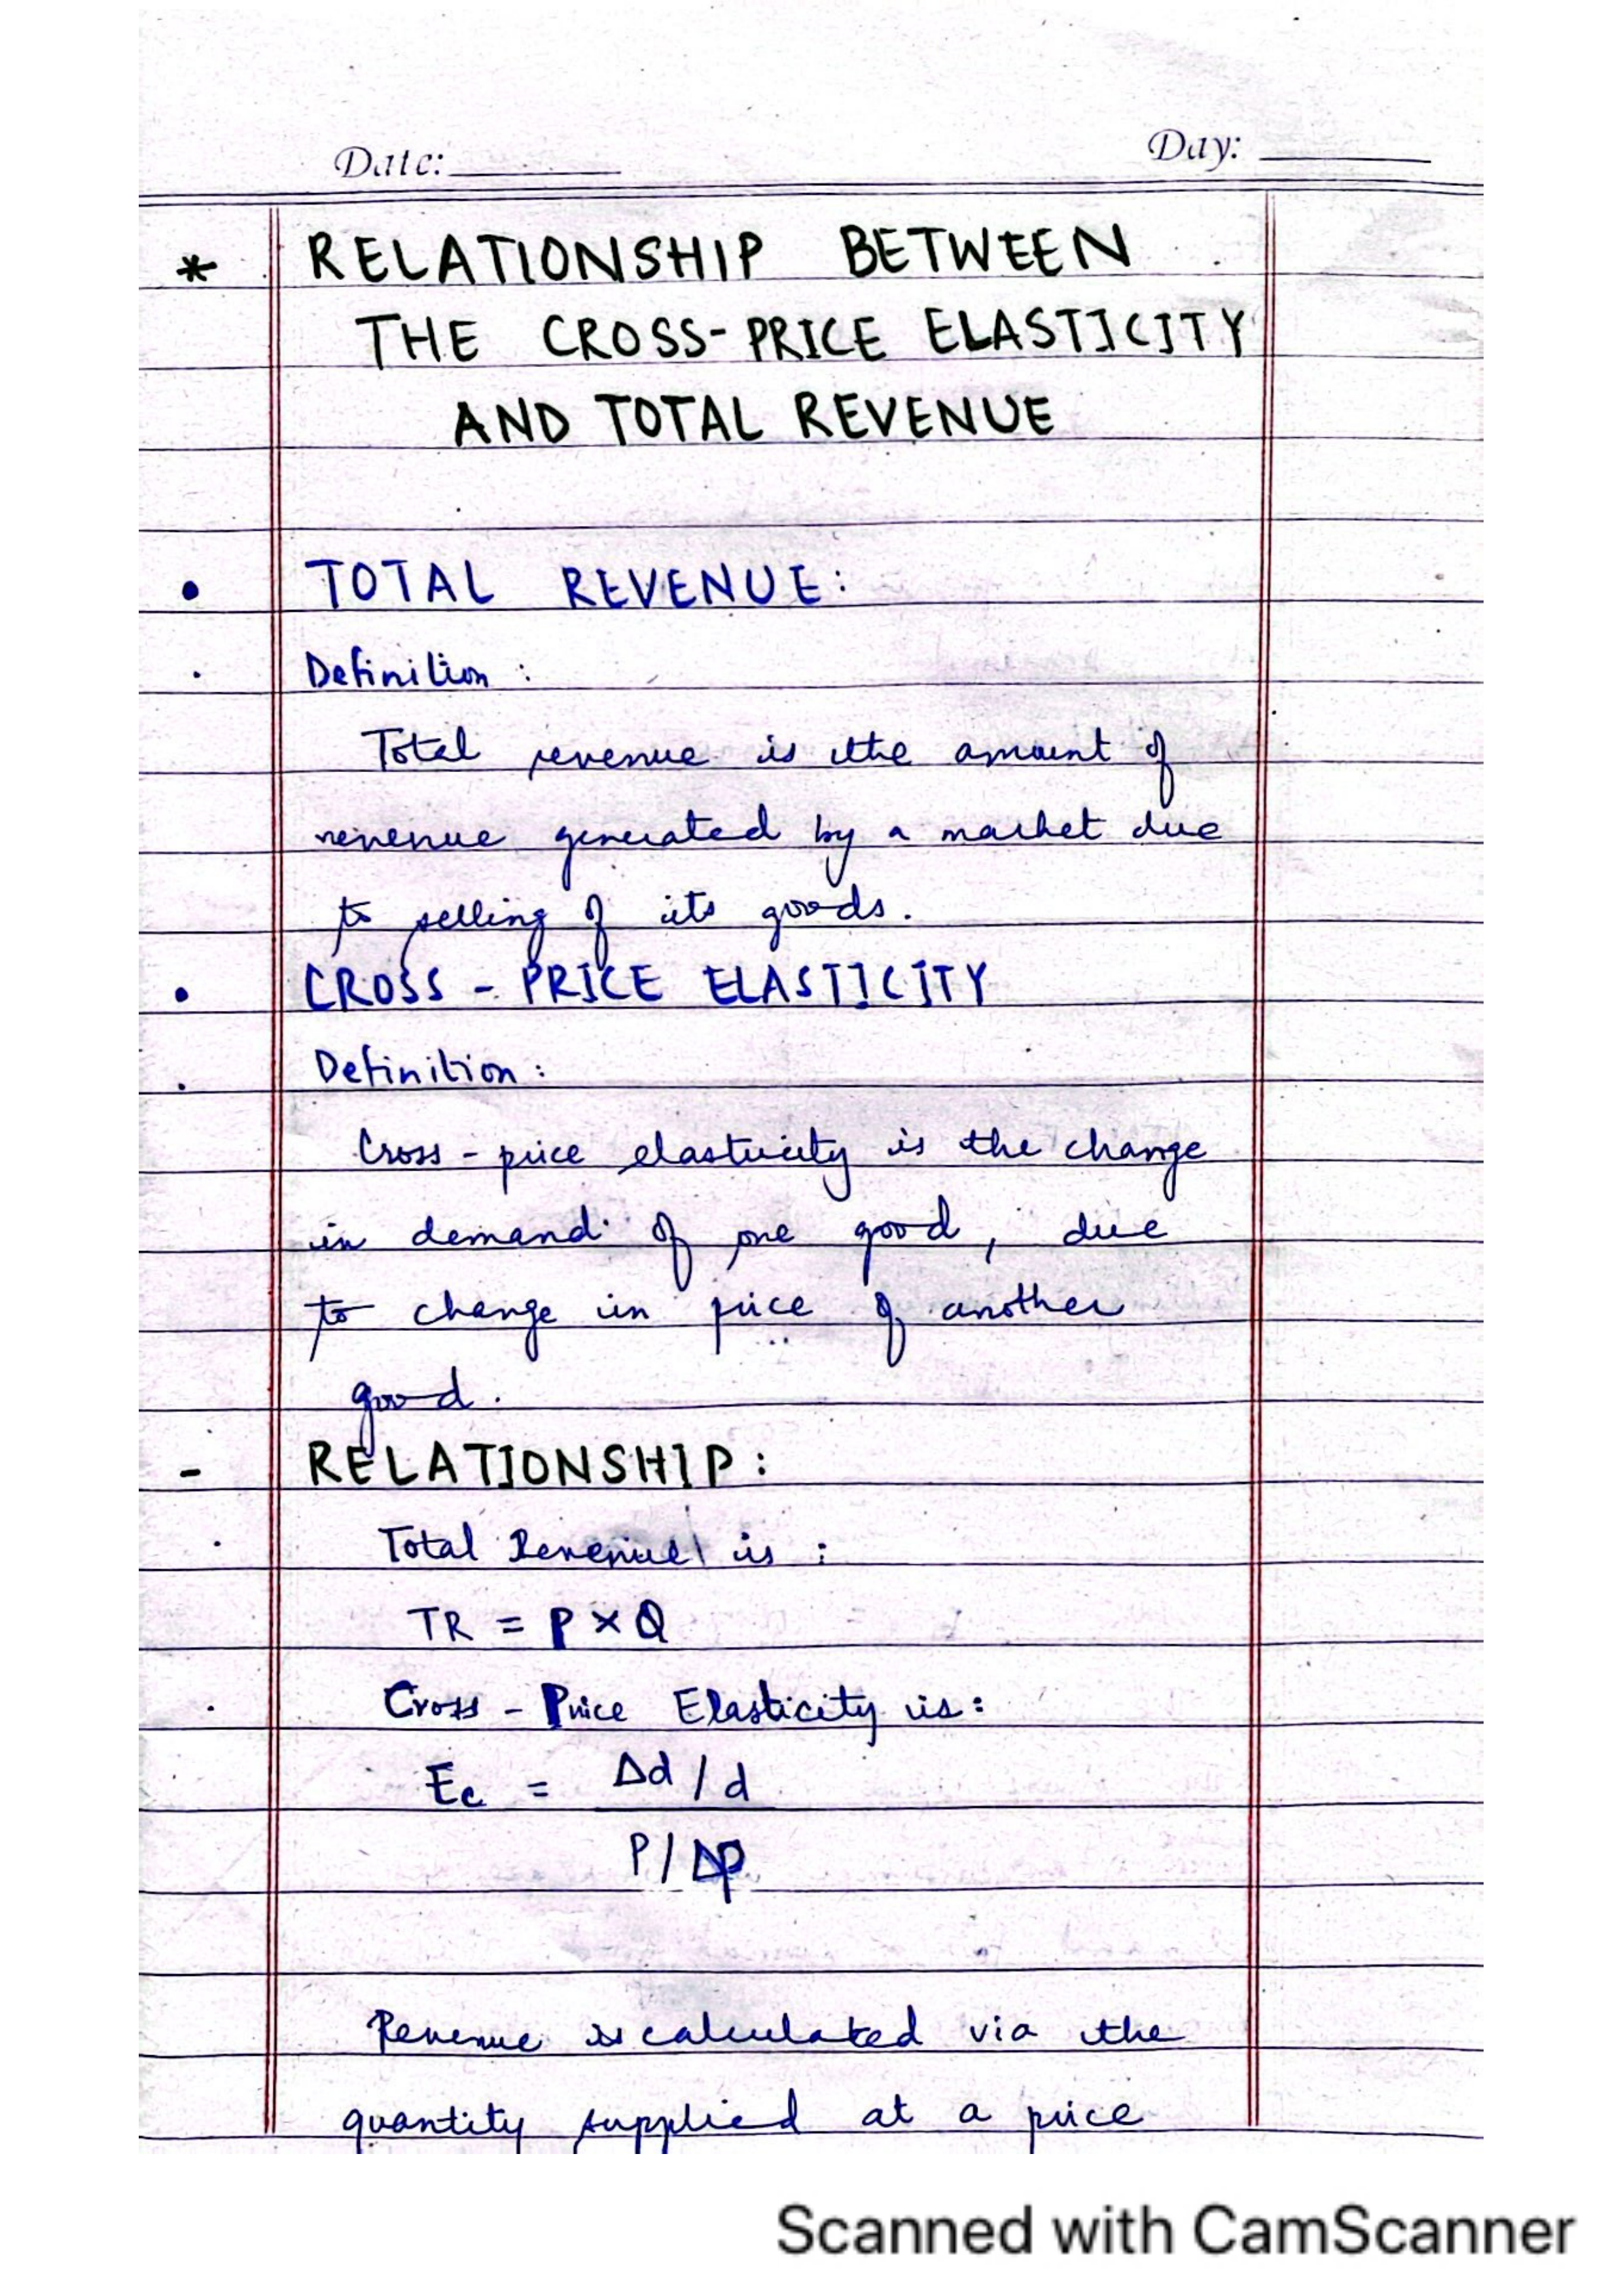 Date: Day:
* RELATIONSHIP BETWEEN
THE CROSS-PRICE ELASTICITY
AND TOTAL REVENUE
• TOTAL REVENUE:
. Definition :
Total revenue is the amount of
revenue generated by a market due
to selling of its goods.
• CROSS - PRICE ELASTICITY
. Definition :
Cross - price elasticity is the change
in demand of one good, due
to change in price of another
good.
- RELATIONSHIP :
. Total Revenue is :
TR = P × Q
. Cross - Price Elasticity is :
Ec = Δd / d
P / Δp
Revenue is calculated via the
quantity supplied at a price
Scanned with CamScanner